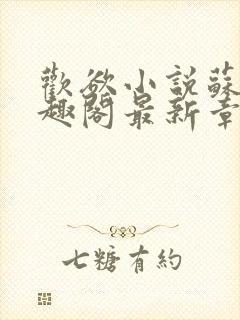 歡欲小說蘇
趣閣最新章
七糖有約